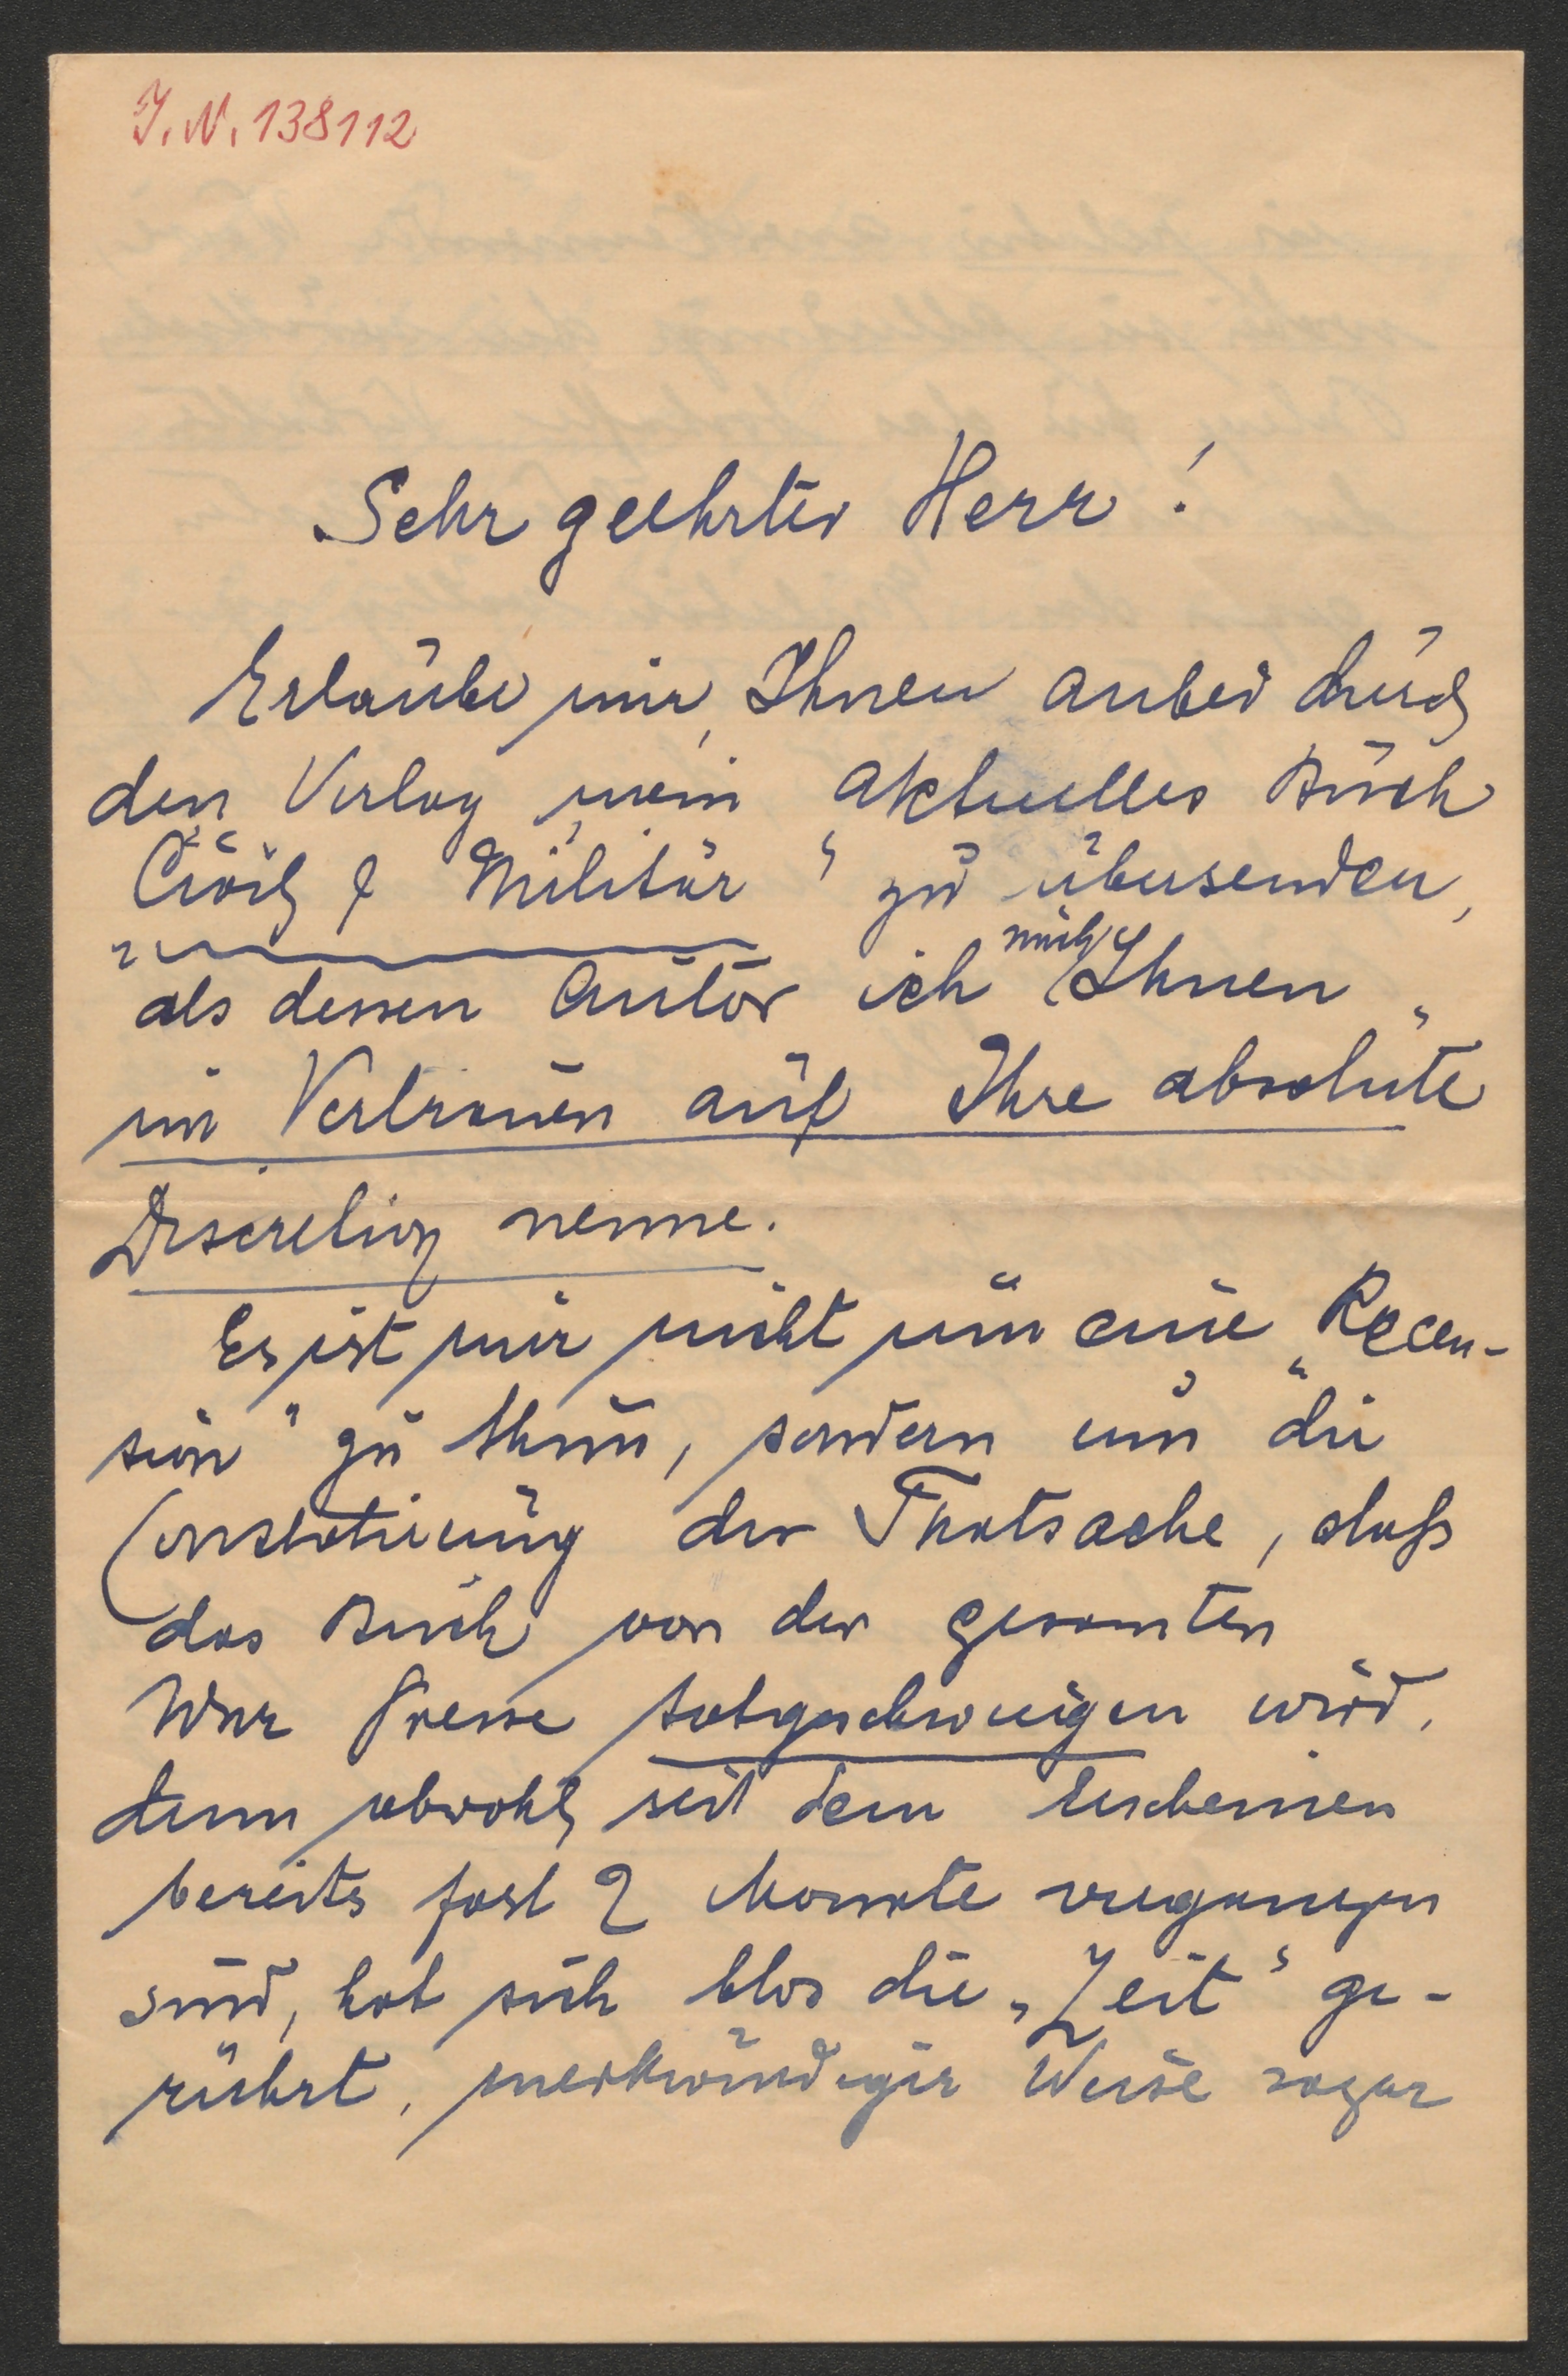 I. N. 138112
Sehr geehrter Herr!
Erlaube mir, Ihnen anbei durch
den Verlag mein aktuelles Buch
„Civil & Militär“ zu übersenden,
als dessen Autor ich mich Ihnen „
im Vertrauen auf Ihre absolute
Discretion nenne.
Es ist mir nicht um eine „Recen-
sion“ zu thun, sondern um die
Constatierung der Thatsache, daß
das Buch von der gesamten
Wnr Presse totgeschwiegen wird.
Denn obwohl seit dem Erscheinen
bereits fast 2 Monate vergangen
sind, hat sich blos die „Zeit“ ge-
rührt, merkwürdiger Weise sogar